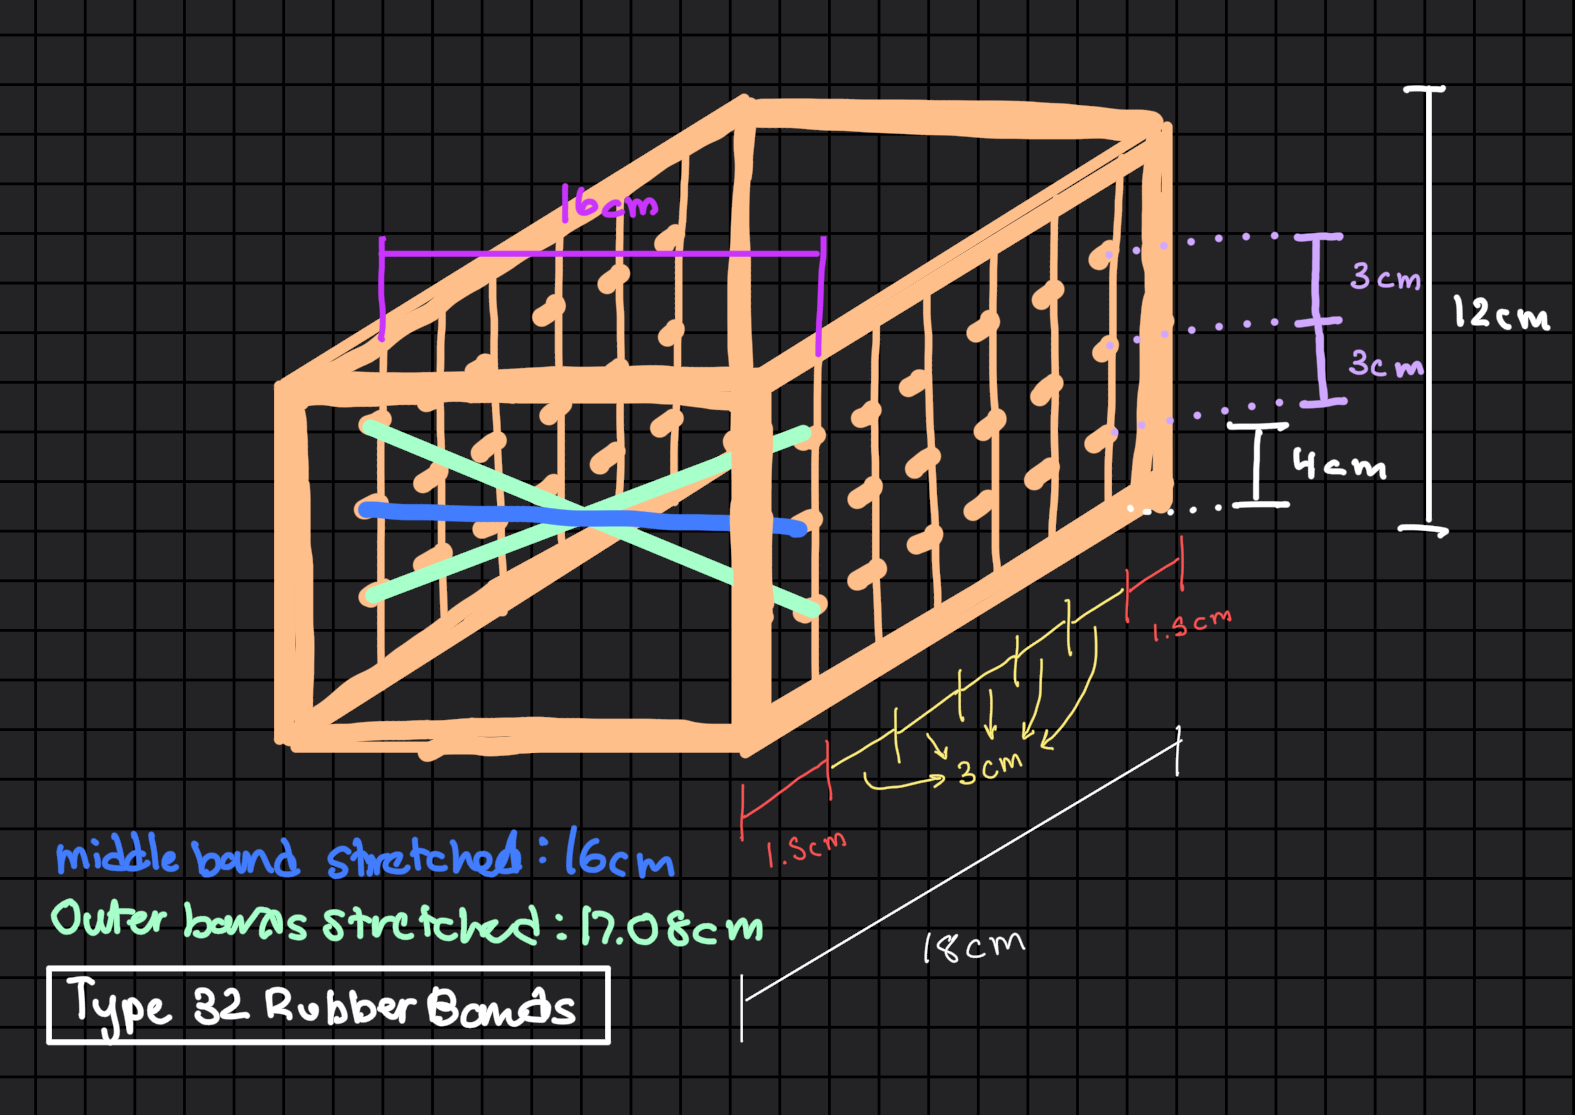 16cm
3cm
12cm
3cm
4cm
1.5cm
3cm
1.5cm
middle band stretched: 16cm
18cm
Outer bands stretched: 17.08cm
Type 32 Rubber Bands